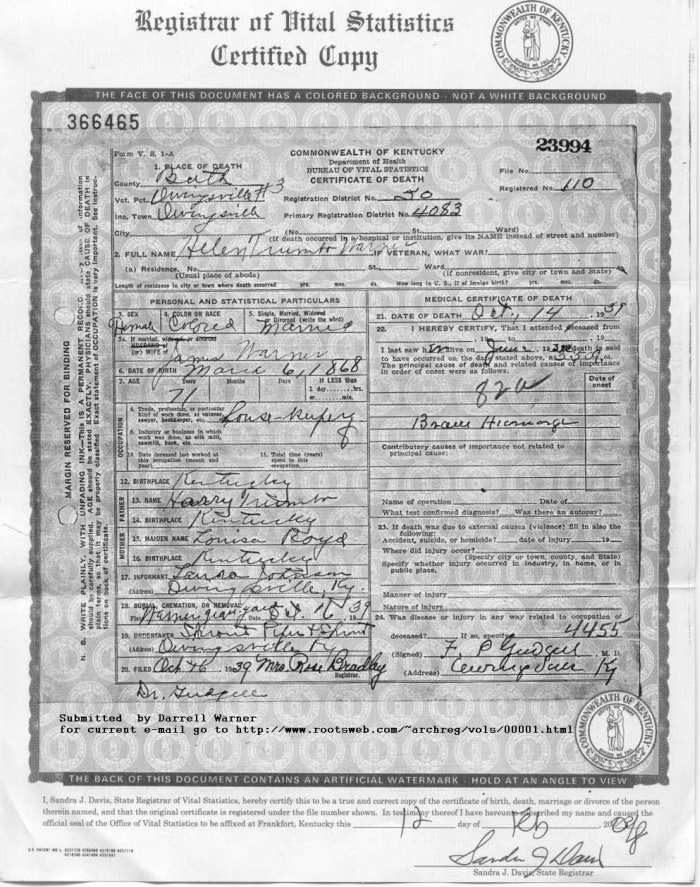 Registrar of Vital Statistics
Certified Copy
COMMONWEALTH OF KENTUCKY
THE FACE OF THIS DOCUMENT HAS A COLORED BACKGROUND · NOT A WHITE BACKGROUND
366465
MARGIN RESERVED FOR BINDING
N. B. WRITE PLAINLY, WITH UNFADING INK—THIS IS A PERMANENT RECORD.
should be carefully supplied. AGE should be stated EXACTLY. PHYSICIANS should state CAUSE OF DEATH in
plain terms, so that it may be properly classified. Exact statement of OCCUPATION is very important. See instruc-
tions on back of certificate.
Form V. S. 1-A
COMMONWEALTH OF KENTUCKY
Department of Health
BUREAU OF VITAL STATISTICS
CERTIFICATE OF DEATH
23994
File No.
Registered No. 110
1. PLACE OF DEATH
County Bath
Vot. Pct. Owingsville #3
Inc. Town Owingsville
Registration District No. 20
Primary Registration District No. 4083
City (No. St. Ward)
(If death occurred in a hospital or institution, give its NAME instead of street and number)
2. FULL NAME Helen Trumbo Warner IF VETERAN, WHAT WAR?
(a) Residence, No. St. Ward
(Usual place of abode) (If nonresident, give city or town and State)
Length of residence in city or town where death occurred yrs. mos. ds. How long in U. S., if of foreign birth? yrs. mos. ds.
PERSONAL AND STATISTICAL PARTICULARS
3. SEX Female
4. COLOR OR RACE Colored
5. Single, Married, Widowed or Divorced (write the word) Married
5a. If married, widowed, or divorced
HUSBAND of
(or) WIFE of James Warner
6. DATE OF BIRTH March 6, 1868
7. AGE Years Months Days If LESS than
1 day hrs.
or min.
71
OCCUPATION
8. Trade, profession, or particular
kind of work done, as spinner,
sawyer, bookkeeper, etc. House-keeping
9. Industry or business in which
work was done, as silk mill,
sawmill, bank, etc.
10. Date deceased last worked at
this occupation (month and
year)
11. Total time (years)
spent in this
occupation
12. BIRTHPLACE Kentucky
FATHER
13. NAME Harry Trumbo
14. BIRTHPLACE Kentucky
MOTHER
15. MAIDEN NAME Louisa Boyd
16. BIRTHPLACE Kentucky
17. INFORMANT
(Address) Owingsville, Ky.
18. BURIAL, CREMATION, OR REMOVAL
Place Warner grave yard Date Oct. 16, 1939
19. UNDERTAKER
(Address) Owingsville Ky
20. FILED Oct 1939 Mrs. Ross Bradley
Registrar.
MEDICAL CERTIFICATE OF DEATH
21. DATE OF DEATH Oct., 14, 1939
22. I HEREBY CERTIFY, That I attended deceased from
, 19 to , 19
I last saw h alive on June, 19 death is said
to have occurred on the date stated above, at m.
The principal cause of death and related causes of importance
in order of onset were as follows:
Date of
onset
82a
Contributory causes of importance not related to
principal cause:
Name of operation Date of
What test confirmed diagnosis? Was there an autopsy?
23. If death was due to external causes (violence) fill in also the
following:
Accident, suicide, or homicide? date of injury 19
Where did injury occur?
(Specify city or town, county, and State)
Specify whether injury occurred in industry, in home, or in
public place.
Manner of injury
Nature of injury
24. Was disease or injury in any way related to occupation of
deceased? If so, specify 4455
(Signed) F. P. Gudgell, M. D.
(Address) Owingsville Ky
Dr. Gudgell
Submitted by Darrell Warner
for current e-mail go to http://www.rootsweb.com/~archreg/vols/00001.html
COMMONWEALTH OF KENTUCKY
THE BACK OF THIS DOCUMENT CONTAINS AN ARTIFICIAL WATERMARK - HOLD AT AN ANGLE TO VIEW
I, Sandra J. Davis, State Registrar of Vital Statistics, hereby certify this to be a true and correct copy of the certificate of birth, death, marriage or divorce of the person
therein named, and that the original certificate is registered under the file number shown. In testimony thereof I have hereunto subscribed my name and caused the
official seal of the Office of Vital Statistics to be affixed at Frankfort, Kentucky this 12 day of Feb, 20
Sandra J Davis
Sandra J. Davis, State Registrar